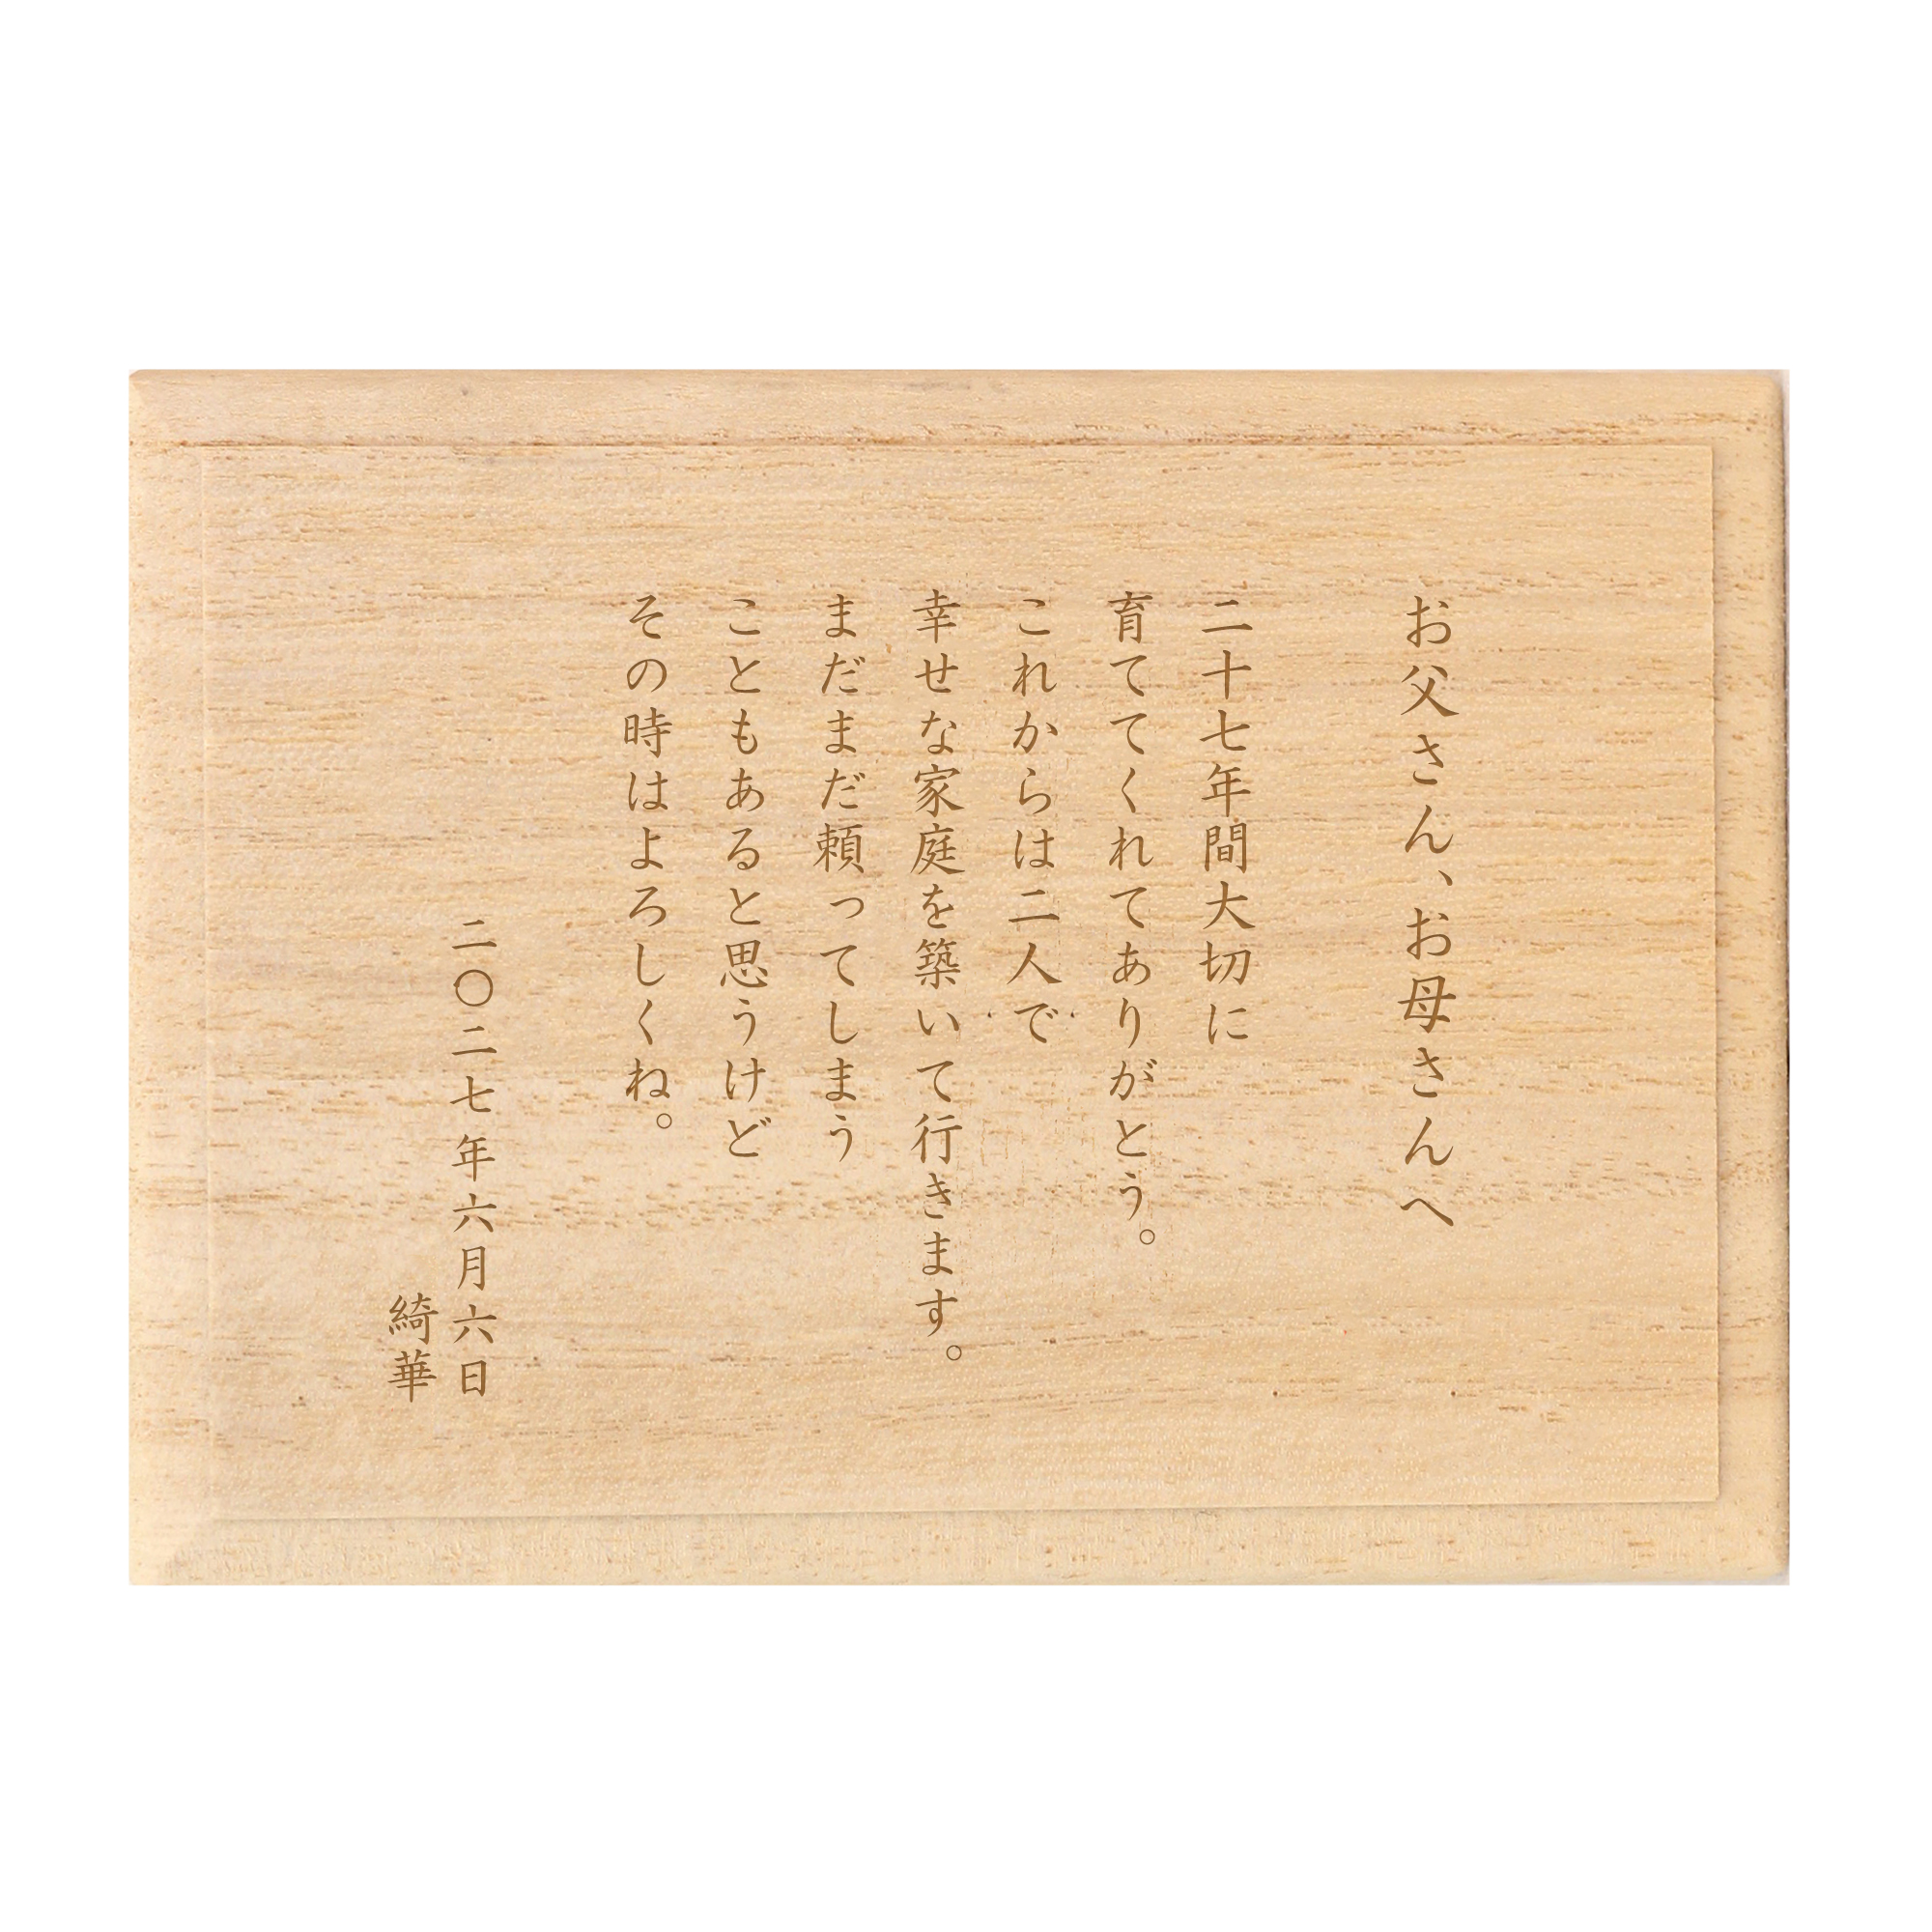 お父さん、お母さんへ
二十七年間大切に
育ててくれてありがとう。
これからは二人で
幸せな家庭を築いて行きます。
まだまだ頼ってしまう
こともあると思うけど
その時はよろしくね。
二〇二七年六月六日
綺華